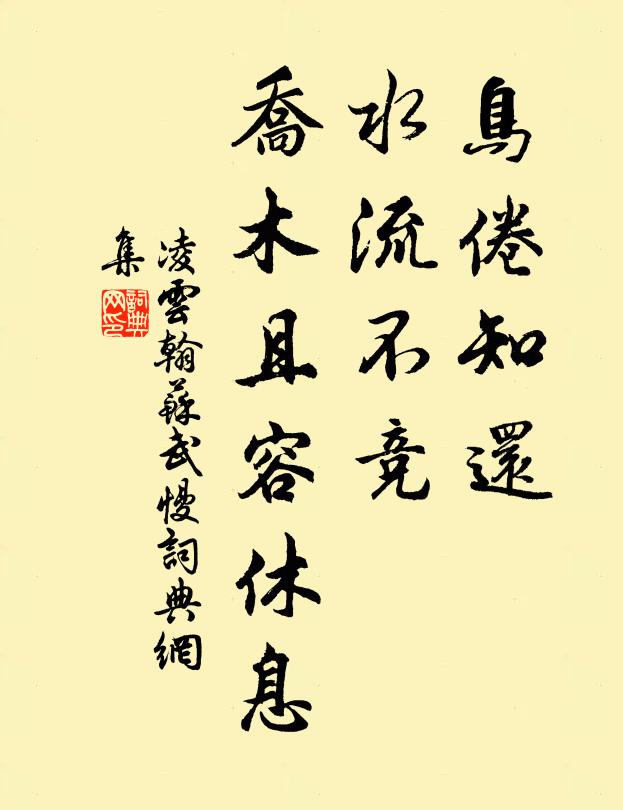 鳥倦知還
水流不競
喬木且容休息
凌雲翰蘇武慢詞典網
集
詞典網印